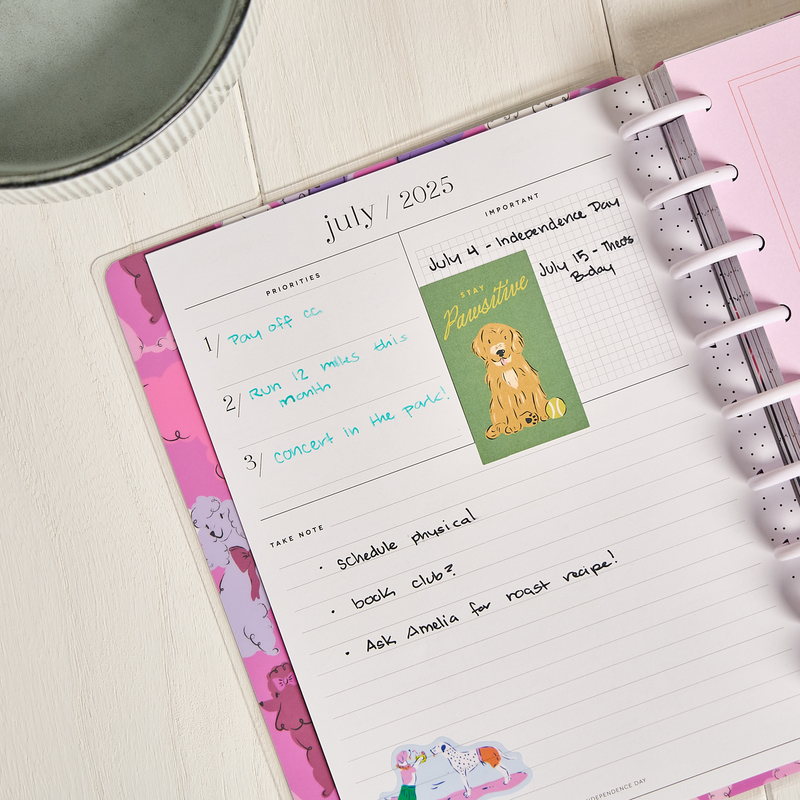 july / 2025
PRIORITIES
1/ Pay off cc
2/ Run 12 miles this
month
3/ concert in the park!
IMPORTANT
July 4 - Independence Day
July 15 - Theo's
B-day
STAY
Pawsitive
TAKE NOTE
• schedule physical
• book club?
• Ask Amelia for roast recipe!
INDEPENDENCE DAY